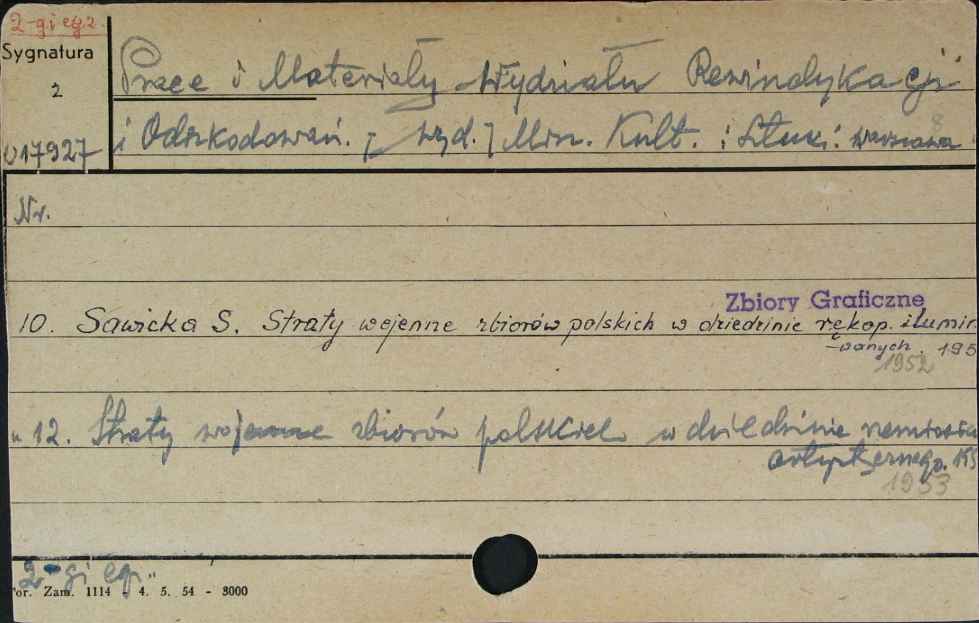 2-gi egz.
Sygnatura
2
U17927
Prace i Materiały Wydziału Rewindykacji
i Odszkodowań. [wyd.] Min. Kult. i Sztuki. Warszawa
Nr.
Zbiory Graficzne
10. Sawicka S. Straty wojenne zbiorów polskich w dziedzinie rękop. ilumin
-wanych. 195
1952
" 12. Straty wojenne zbiorów polskich w dziedzinie rzemiosła
artystycznego.
1953
2-gi eg.
or. Zam. 1114 - 4. 5. 54 - 8000